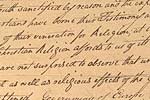 outh sanctified by reason and the ex
rtians have born their testimony a
of their veneration for Religion, at
hristian Religion affords to us of ill
are not surprised to observe that w
t as well as religious effects of the
Governmen of Europe